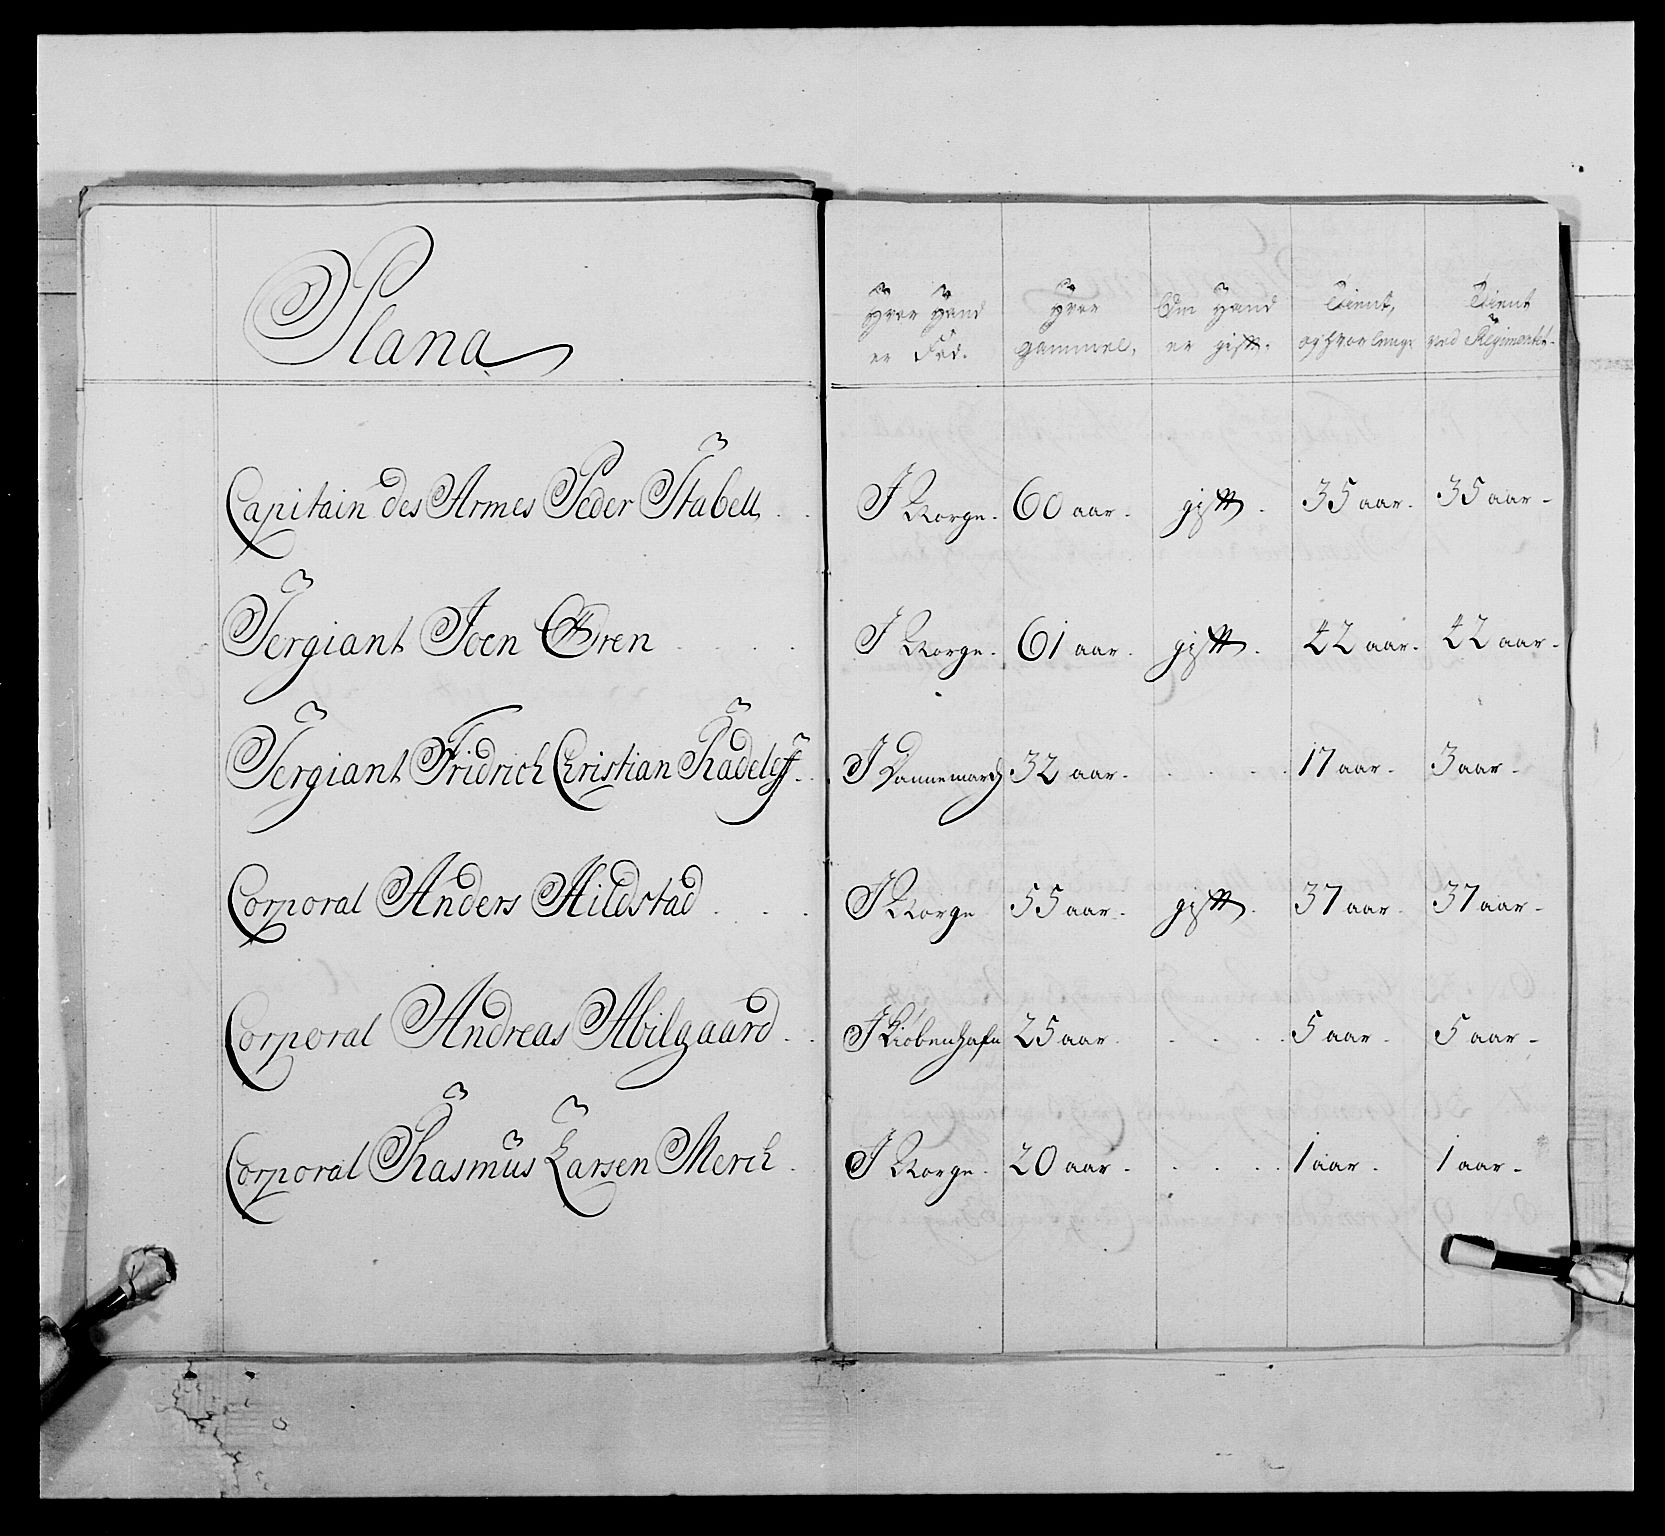 Plana
Hvor Hand er Fød.
Hvor gammel.
Om Hand er gift.
Tient, og hvor længe
Tient ved Regimentet.
Capitain des Armes Peder Stabell. I Norge. 60 aar. gift. 35 aar. 35 aar.
Sergiant Joen Øren I Norge. 61 aar. gift. 42 aar. 42 aar.
Sergiant Fridrich Christian Radeleff. I Dannemarch 32 aar. 17 aar. 3 aar.
Corporal Anders Hildstad I Norge 55 aar. gift. 37 aar. 37 aar.
Corporal Andreas Abilgaard I Kiøbenhafn 25 aar. 5 aar. 5 aar.
Corporal Rasmus Larsen Merch I Norge. 20 aar. 1 aar. 1 aar.